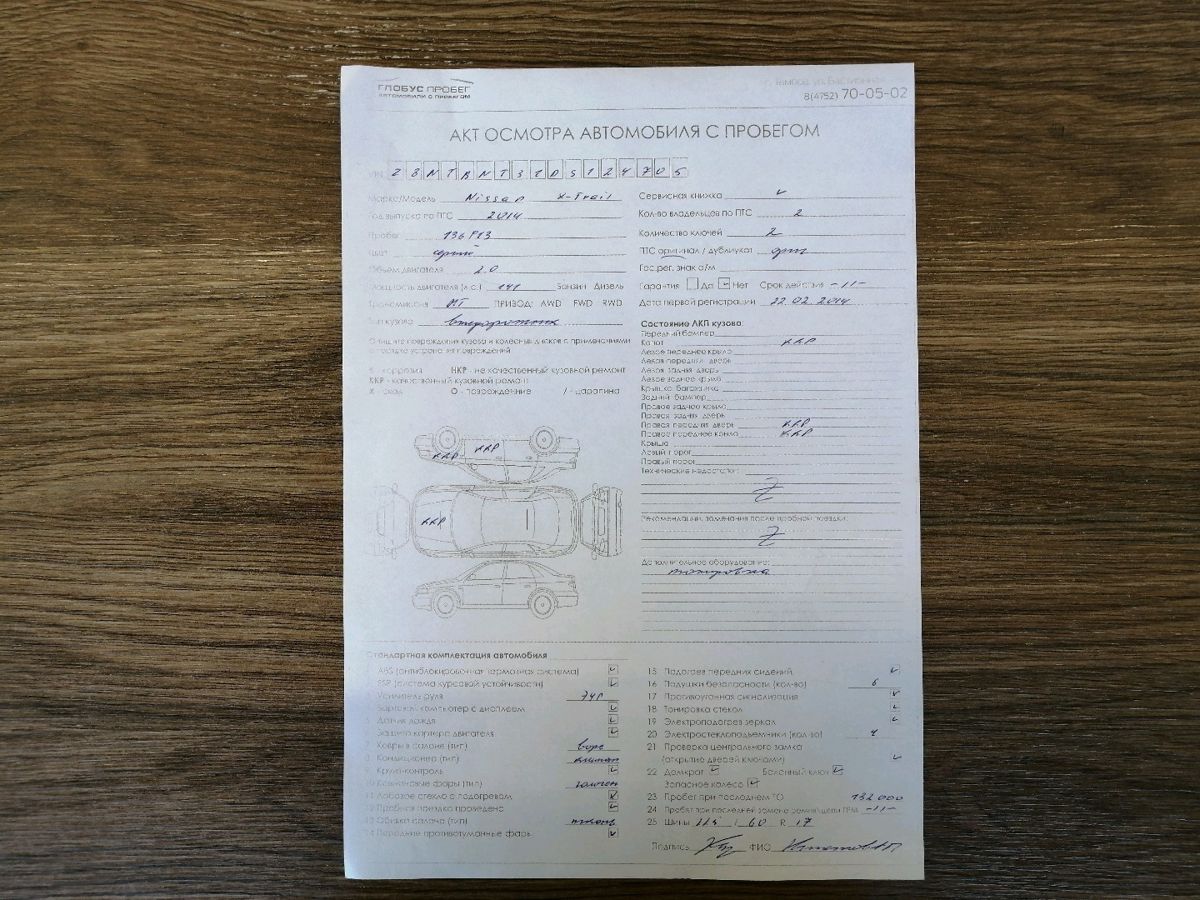 ГЛОБУС ПРОБЕГ
АВТОМОБИЛИ С ПРОБЕГОМ
г. Тамбов, ул. Бастионная
8(4752) 70-05-02
АКТ ОСМОТРА АВТОМОБИЛЯ С ПРОБЕГОМ
VIN
Марка/Модель Nissan X-Trail
Год выпуска по ПТС 2014
Пробег
Цвет серый
Объём двигателя 2.0
Мощность двигателя (л.с.) 141 Бензин Дизель
Трансмиссия МТ ПРИВОД: AWD FWD RWD
Тип кузова внедорожник
Опишите повреждения кузова и колесных дисков с примечаниями
о методе устранения повреждений
К - коррозия НКР - не качественный кузовной ремонт
ККР - качественный кузовной ремонт
Х - скол О - повреждение / - царапина
ККР ККР
ККР
Сервисная книжка
Кол-во владельцев по ПТС 2
Количество ключей 2
ПТС оригинал / дубликат ориг
Гос.рег. знак а/м
Гарантия Да Нет Срок действия -//-
Дата первой регистрации 22.02.2014
Состояние ЛКП кузова:
Передний бампер
Капот ККР
Левое переднее крыло
Левая передняя дверь
Левая задняя дверь
Левое заднее крыло
Крышка багажника
Задний бампер
Правое заднее крыло
Правая задняя дверь
Правая передняя дверь ККР
Правое переднее крыло ККР
Крыша
Левый порог
Правый порог
Технические недостатки:
Z
Рекомендации, замечания после пробной поездки:
Z
Дополнительное оборудование:
тонировка
Стандартная комплектация автомобиля
ABS (антиблокировочная тормозная система)
ESP (система курсовой устойчивости)
Усилитель руля ЭУР
Бортовой компьютер с дисплеем
5 Датчик дождя
Защита картера двигателя
7 Ковры в салоне (тип) ворс
8 Кондиционер (тип) климат
9 Круиз-контроль
10 Ксеноновые фары (тип) галоген
11 Лобовое стекло с подогревом
12 Пробная поездка проведена
13 Обивка салона (тип) ткань
14 Передние противотуманные фары
15 Подогрев передних сидений
16 Подушки безопасности (кол-во) 6
17 Противоугонная сигнализация
18 Тонировка стекол
19 Электроподогрев зеркал
20 Электростеклоподъемники (кол-во) 4
21 Проверка центрального замка
(открытие дверей ключами)
22 Домкрат Балонный ключ
Запасное колесо
23 Пробег при последнем ТО 132 000
24 Пробег при последней замене ремня/цепи ГРМ -//-
25 Шины / 60 R 17
Подпись ФИО